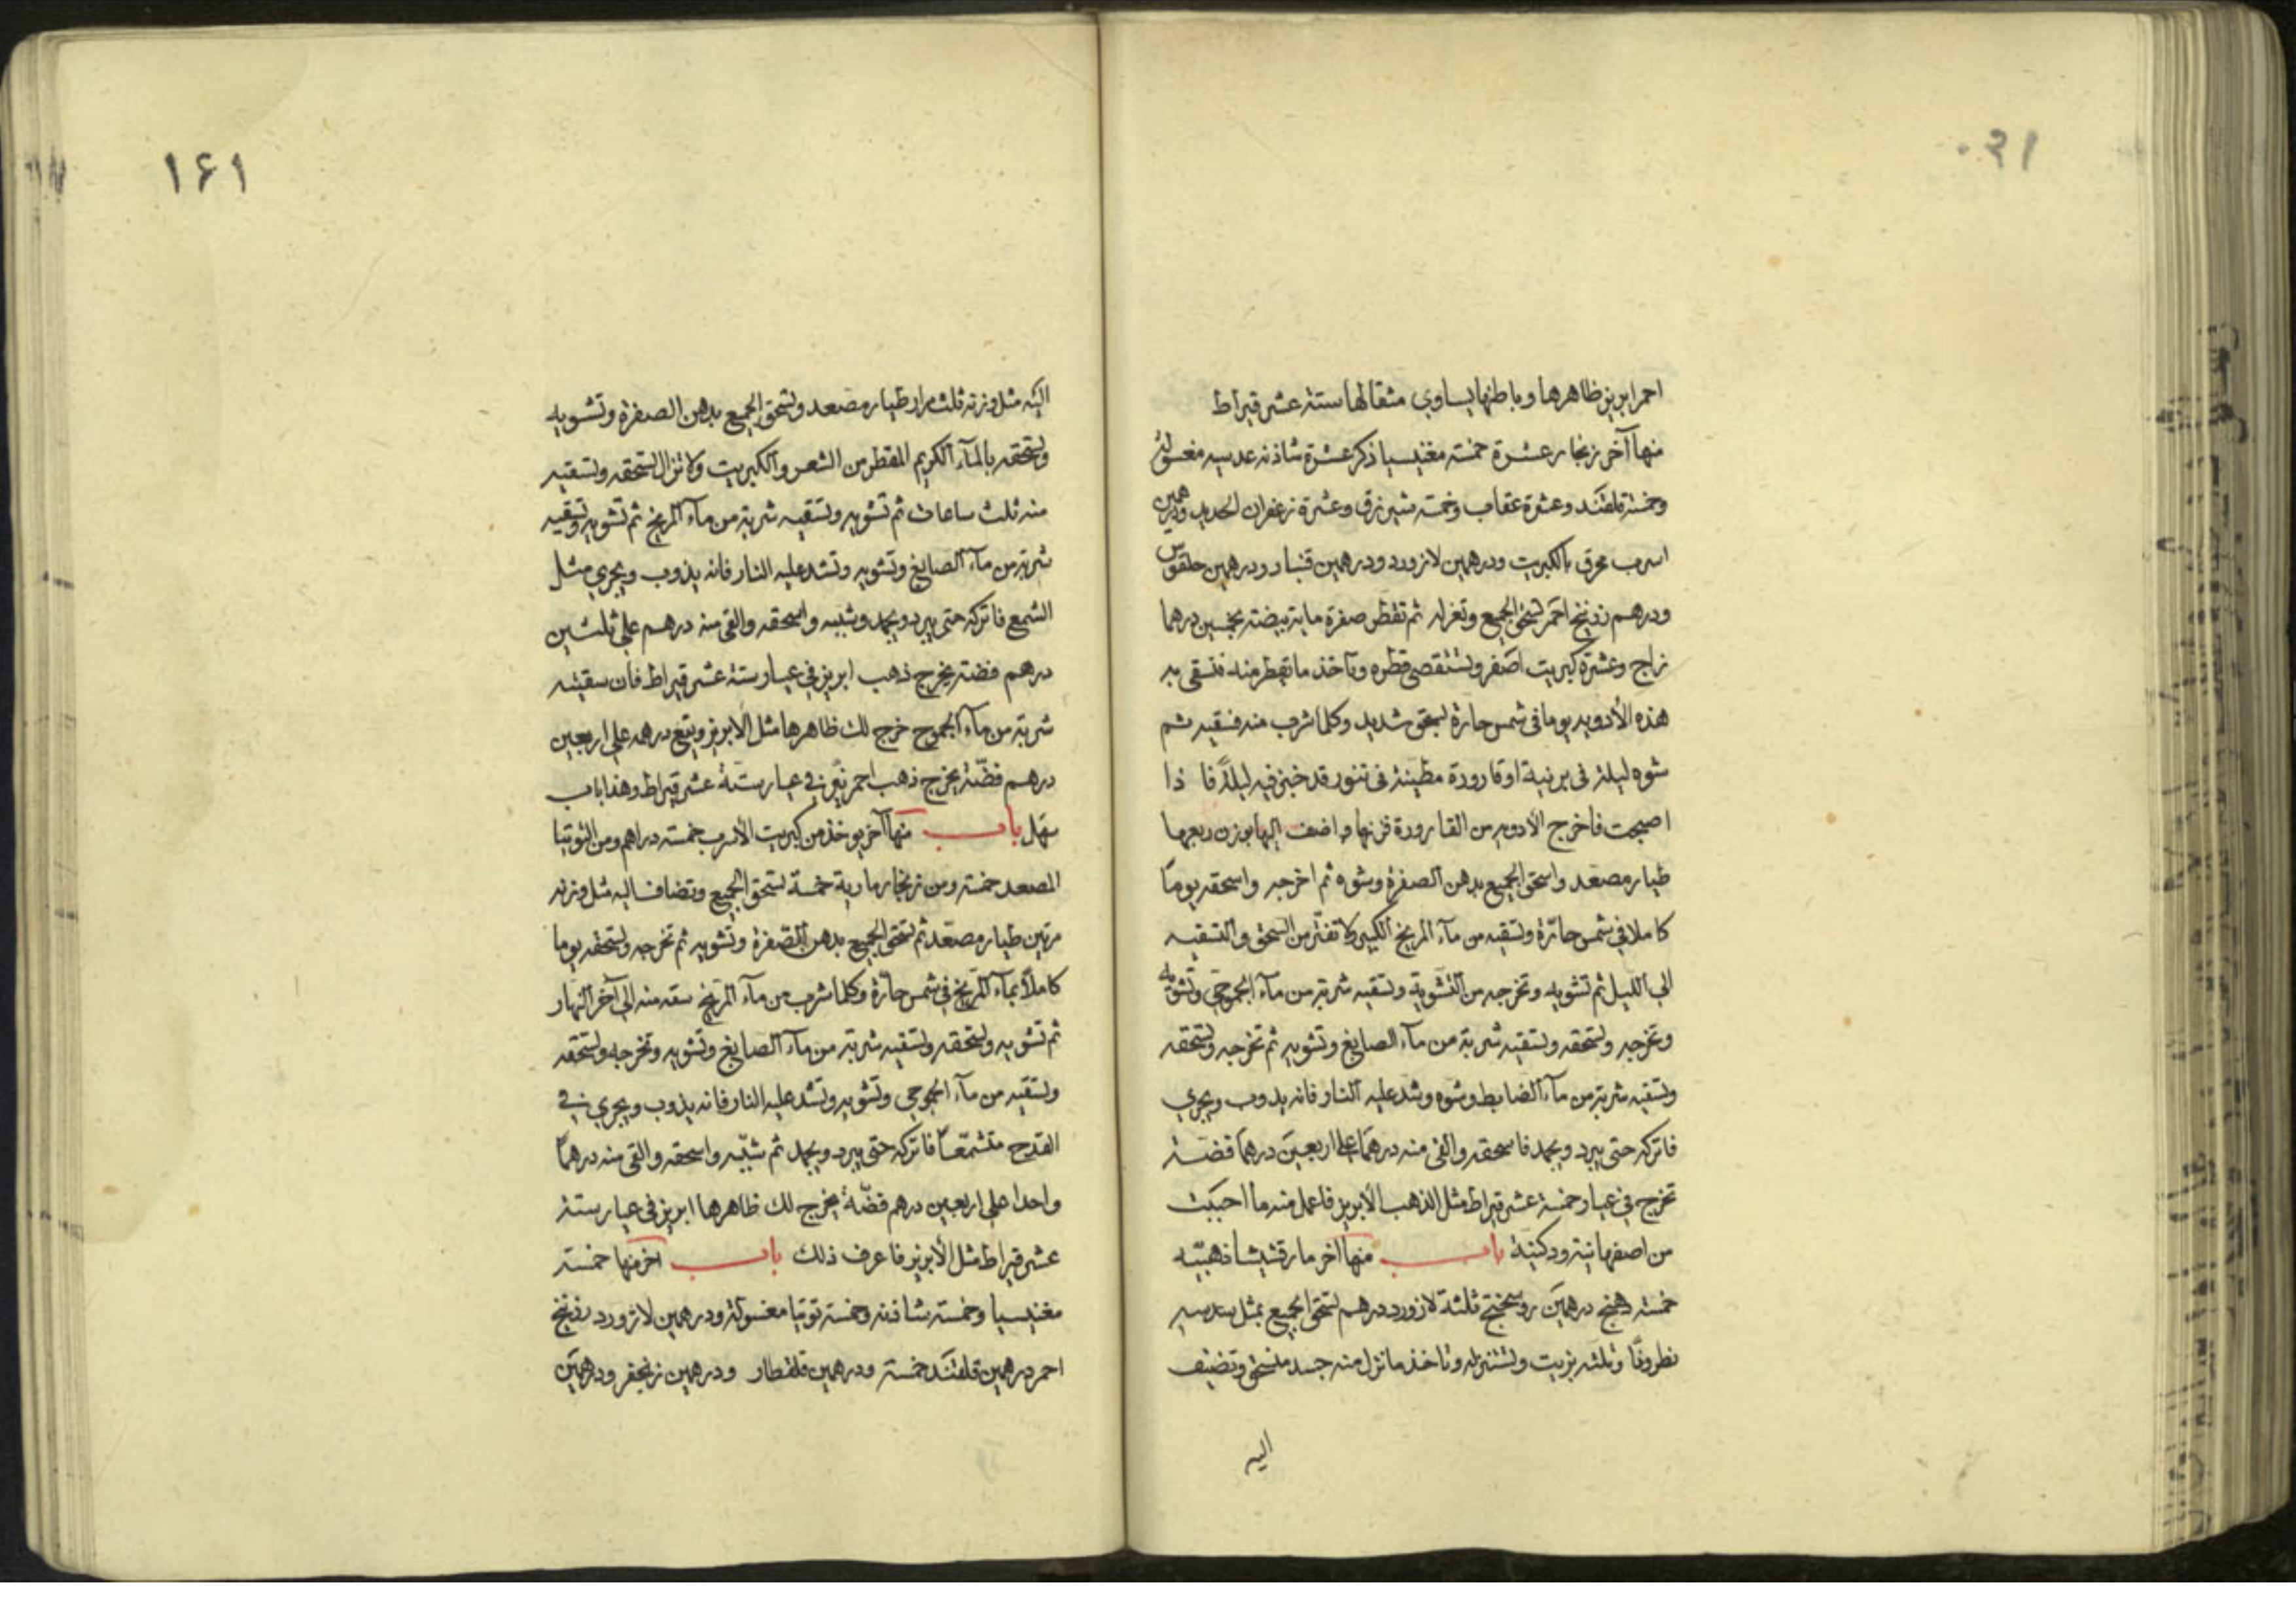 احمر ابريز ظاهرها وباطنها يساوي مثقالها ستة عشر قيراط
منها آخر زنجار عشرة خمسة مغنيسيا ذكر عشرة شاذنه عدسيه مغسوله
وخمسة قلقند وعشرة عقاب وخمسة وعشرة زعفران الحديد ودرهمين
اسرب محرق بالكبريت ودرهمين لازورد ودرهمين قنبار ودرهمين حلقوس
ودرهم زرنيخ احمر تسحق الجميع وتعزله ثم تقطر صفرة ماية بيضة بخمسين درهما
زاج وعشرة كبريت اصفر وتستقصى قطره وتاخذ ما تقطر منه فتسقى به
هذه الأدويه يوما فى شمس حارة بسحق شديد وكلما شرب منه فسقيه ثم
شوه ليلة فى برنية او قارورة مطينة فى تنور قد خبز فيه ليلةً فا ذا
اصبحت فاخرج الأدويه من القارورة فزنها واضف اليها بوزن ربعها
طيار مصعد واسحق الجميع بدهن الصفرة وشوه ثم اخرجه واسحقه يوماً
كاملا في شمس حارّة وتسقيه من مآء المريخ الكبير ولا تفتّر من السحق والتسقيه
الى الليل ثم تشويه وتخرجه من التشوية وتسقيه شربة من مآء الجموحى وتشويه
وتخرجه وتسحقه وتسقيه شربة من مآء الصايغ وتشويه ثم تخرجه وتسحقه
وتسقيه شربة من مآء الضابط وشوه وشد عليه النار فانه يذوب ويجري
فاتركه حتى يبرد ويجمد فاسحقه والقى منه درهمًا على اربعين درهمًا فضّة
تخرج في عيار خمسة عشر قيراط مثل الذهب الأبريز فاعمل منه ما احببت
من اصفهانية ودكنية باب منها آخر مارقشيشا ذهبيّه
خمسة دهنج درهمين روسختج ثلثة لازورد درهم تسحق الجميع بمثل سدسه
نطرونًا وثلثه بزيت وتستنزله وتاخذ ما نزل منه جسد منسحق وتضيف
اليه
١٦١
اليه مثل وزنه ثلث مرار طيار مصعد وتسحق الجميع بدهن الصفرة وتشويه
وتسحقه بالمآء الكريم المقطر من الشعر والكبريت ولا تزال تسحقه وتسقيه
منه ثلث ساعات ثم تشويه وتسقيه شربة من مآء المريخ ثم تشويه وتسقيه
شربة من مآء الصايغ وتشويه وتشد عليه النار فانه يذوب ويجري مثل
الشمع فاتركه حتى يبرد ويجمد وشببه واسحقه والقى منه درهم على ثلثين
درهم فضة يخرج ذهب ابريز في عيار ستة عشر قيراط فان سقيته
شربة من مآء الجموح خرج لك ظاهرها مثل الابريز ويقع درهمه على اربعين
درهم فضّة يخرج ذهب احمر نقى في عيار ستة عشر قيراط وهذا باب
سهل باب منها آخر يوخذ من كبريت الأسرب خمسة دراهم ومن التوتيا
المصعد خمسة ومن زنجار مارية خمسة تسحق الجميع وتضاف اليه مثل وزنه
مرتين طيار مصعّد ثم تسحق الجميع بدهن الصّفرة وتشويه ثم تخرجه وتسحقه يوما
كاملاً بمآء المريخ في شمس حارّة وكلما شرب من مآء المريخ سقه منه الى آخر النهار
ثم تشويه وتسحقه وتسقيه شربة من مآء الصايغ وتشويه وتخرجه وتسحقه
وتسقيه من مآء الجموحى وتشويه وتشد عليه النار فانه يذوب ويجري في
القدح متشمّعاً فاتركه حتى يبرد ويجمد ثم شبّبه واسحقه والقى منه درهمًا
واحدا على اربعين درهم فضّة يخرج لك ظاهرها ابريز في عيار ستة
عشر قيراط مثل الأبريز فاعرف ذلك باب آخر منها خمسة
مغنيسيا وخمسة شاذنه وخمسة توتيا مغسولة ودرهمين لازورد زرنيخ
احمر درهمين قلقند خمسة ودرهمين قلقطار ودرهمين زنجفر ودرهمين